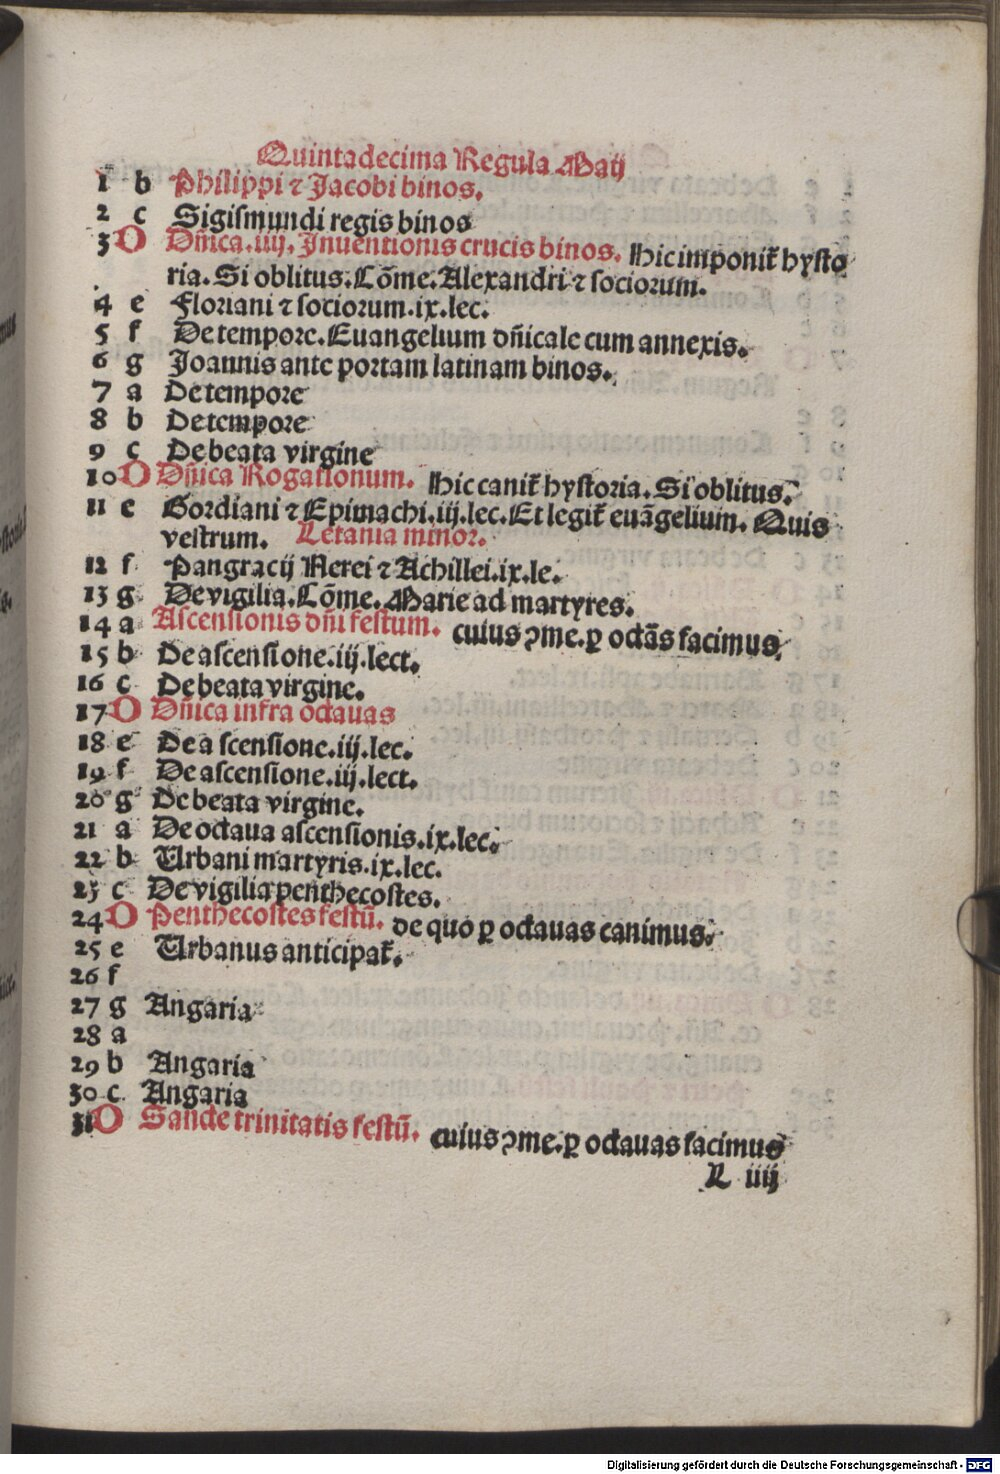 Quintadecima Regula Maij
1 b Philippi ⁊ Jacobi binos.
2 c Sigismundi regis binos
3 D Dñica.iiij. Inuentionis crucis binos. Hic imponit᷑ hysto
ria. Si oblitus. Cõme. Alexandri ⁊ sociorum.
4 e Floriani ⁊ sociorum.ix.lec.
5 f De tempore. Euangelium dñicale cum annexis.
6 g Joannis ante portam latinam binos.
7 a De tempore
8 b De tempore
9 c De beata virgine
10 D Dñica Rogationum. Hic canit᷑ hystoria. Si oblitus.
11 e Gordiani ⁊ Epimachi.iij.lec. Et legit᷑ euãgelium. Quis
vestrum. Letania minor.
12 f Pangracij Nerei ⁊ Achillei.ix.le.
13 g De vigilia. Cõme. Marie ad martyres.
14 a Ascensionis dñi festum. cuius ꝯme. ꝑ octãs facimus.
15 b De ascensione.iij.lect.
16 c De beata virgine.
17 D Dñica infra octauas
18 e De a scensione.iij.lec.
19 f De ascensione.iij.lect.
20 g De beata virgine.
21 a De octaua ascensionis.ix.lec.
22 b Urbani martyris.ix.lec.
23 c De vigilia penthecostes.
24 D Penthecostes festũ. de quo ꝑ octauas canimus.
25 e Urbanus anticipat᷑.
26 f
27 g Angaria
28 a
29 b Angaria
30 c Angaria
31 D Sancte trinitatis festũ. cuius ꝯme. ꝑ octauas facimus
R iiij
Digitalisierung gefördert durch die Deutsche Forschungsgemeinschaft - DFG